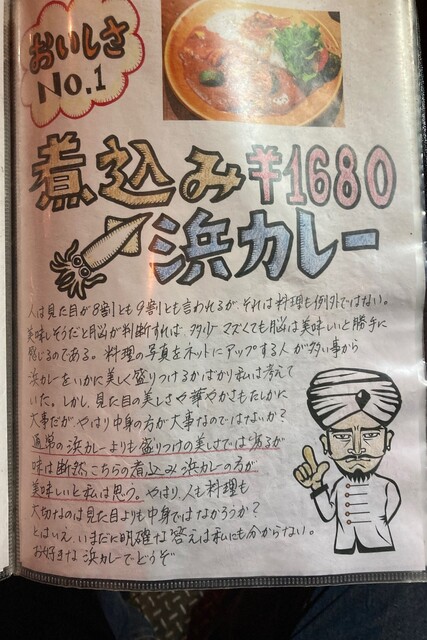 おいしさ
No.1
煮込み ¥1680
浜カレー
人は見た目が8割とも9割とも言われるが、それは料理も例外ではない。
美味しそうだと脳が判断すれば、多少マズくても脳は美味しいと勝手に
感じるのである。料理の写真をネットにアップする人が多い事から
浜カレーをいかに美しく盛りつけるかばかり私は考えて
いた。しかし、見た目の美しさや華やかさもたしかに
大事だが、やはり中身の方が大事なのではないか?
通常の浜カレーよりも盛りつけの美しさでは劣るが
味は断然こちらの煮込み浜カレーの方が
美味しいと私は思う。やはり、人も料理も
大切なのは見た目よりも中身ではなかろうか?
とはいえ、いまだに明確な答えは私にも分からない。
お好きな浜カレーでどうぞ